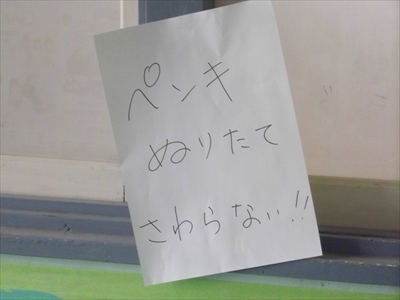 ペンキ
ぬりたて
さわらない!!